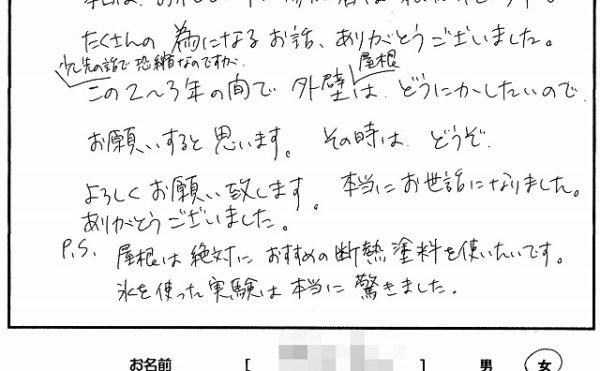 たくさんの為になるお話、ありがとうございました。
少し先の話で恐縮なのですが、
屋根
この2〜3年の間で外壁は、どうにかしたいので
お願いすると思います。その時は、どうぞ、
よろしくお願い致します。本当にお世話になりました。
ありがとうございました。
P.S. 屋根は絶対におすすめの断熱塗料を使いたいです。
氷を使った実験は本当に驚きました。
お名前 [ ] 男 女